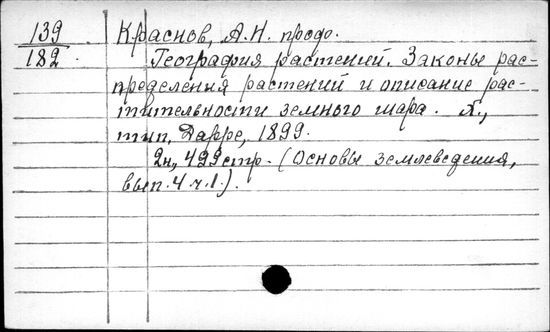 139 Краснов, А.Н. проф.
182 География растений. Законы рас-
пределения растений и описание рас-
тительности земного шара. Х.,
тип. Дарре, 1899.
2н, 499 стр. (Основы землеведения,
вып. 4 ч. 1.).